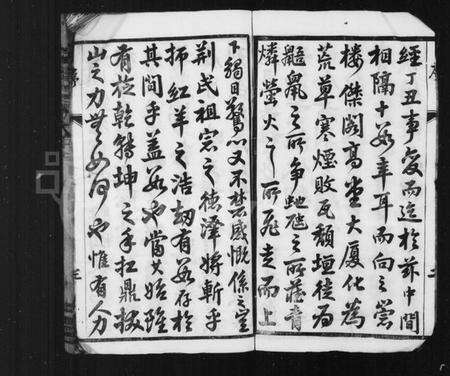 經丁丑事變而迄於茲中間
相隔十數年耳而向之崇
樓傑閣高堂大廈化為
荒草寒煙敗瓦頹垣徒為
鼯鼠之所爭虺之所藏青
燐螢火之所飛走而上
下獨目驚心又不禁感慨係之豈
荆民祖宗之德澤將斬乎
抑紅羊之浩劫有數存於
其間乎蓋數也當其始雖
有旋乾轉坤之手扛鼎拔
山之力無如何也惟有人力
序
三